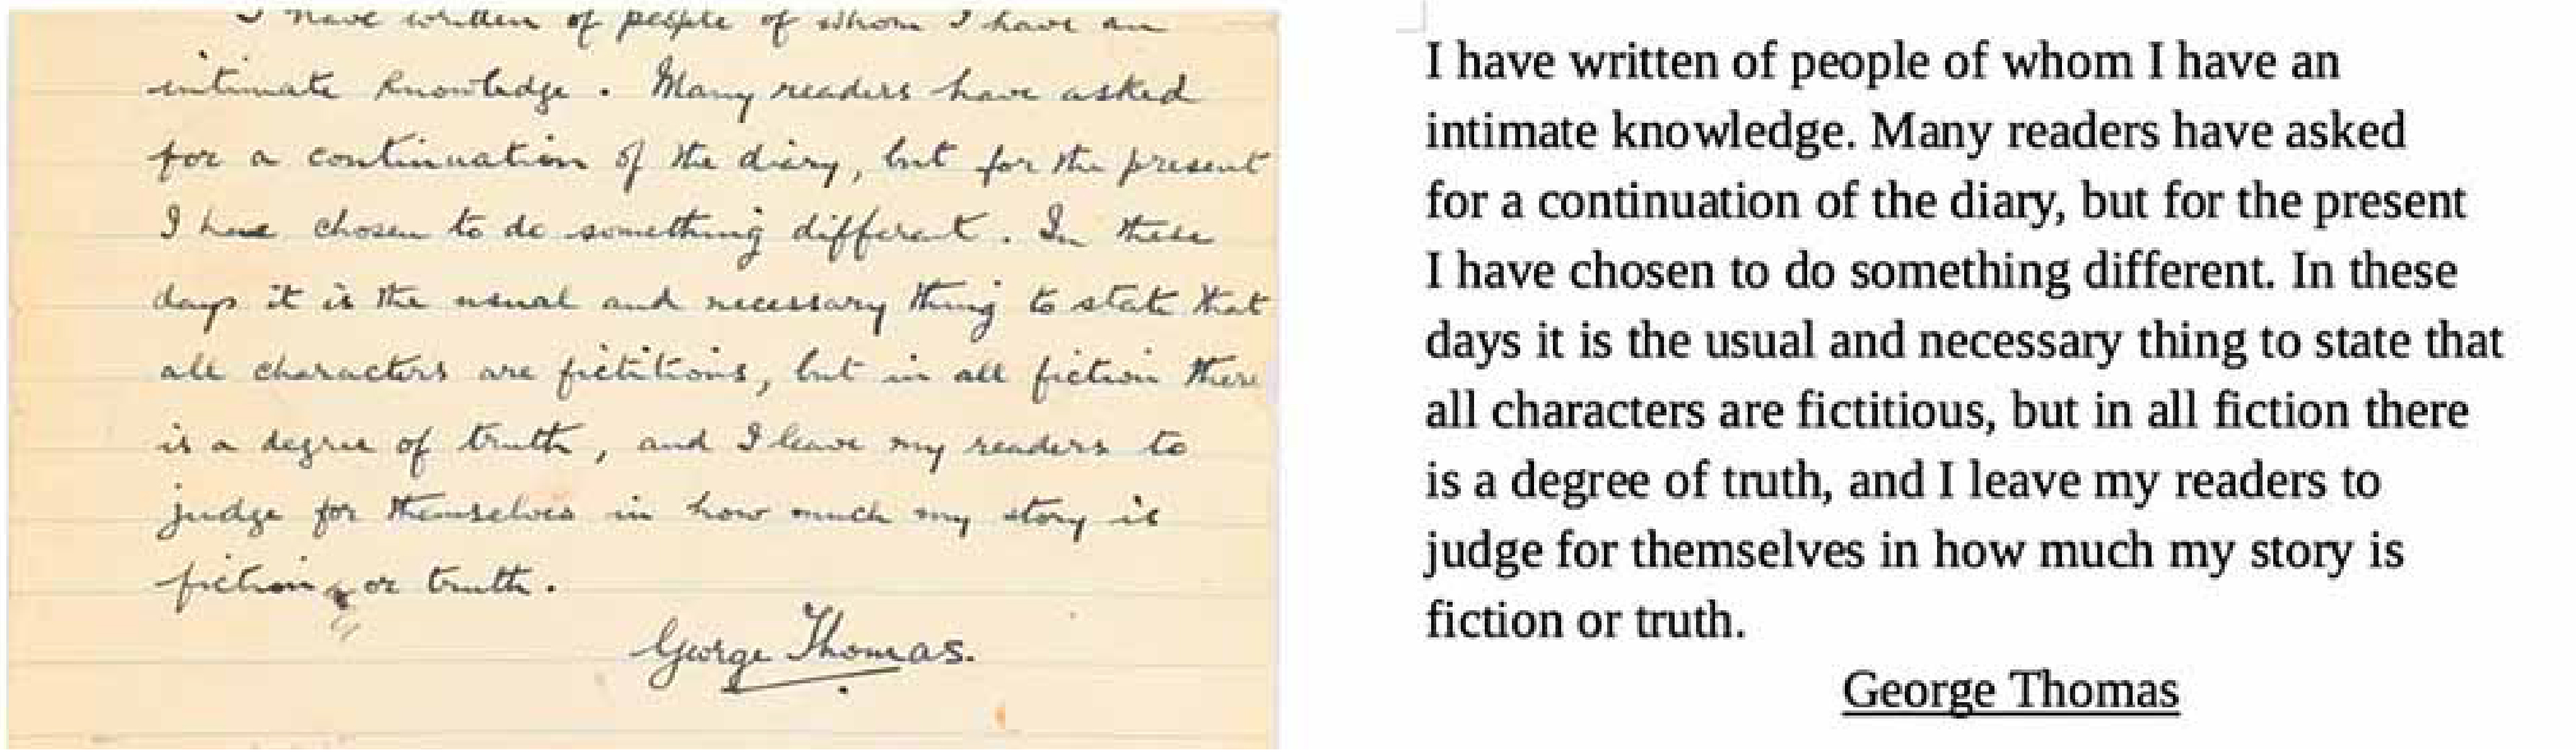 I have written of people of whom I have an
intimate knowledge. Many readers have asked
for a continuation of the diary, but for the present
I have chosen to do something different. In these
days it is the usual and necessary thing to state that
all characters are fictitious, but in all fiction there
is a degree of truth, and I leave my readers to
judge for themselves in how much my story is
fiction or truth.
George Thomas.
I have written of people of whom I have an
intimate knowledge. Many readers have asked
for a continuation of the diary, but for the present
I have chosen to do something different. In these
days it is the usual and necessary thing to state that
all characters are fictitious, but in all fiction there
is a degree of truth, and I leave my readers to
judge for themselves in how much my story is
fiction or truth.
George Thomas